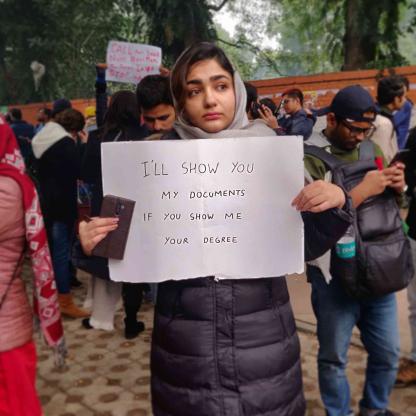 I'LL SHOW YOU
MY DOCUMENTS
IF YOU SHOW ME
YOUR DEGREE